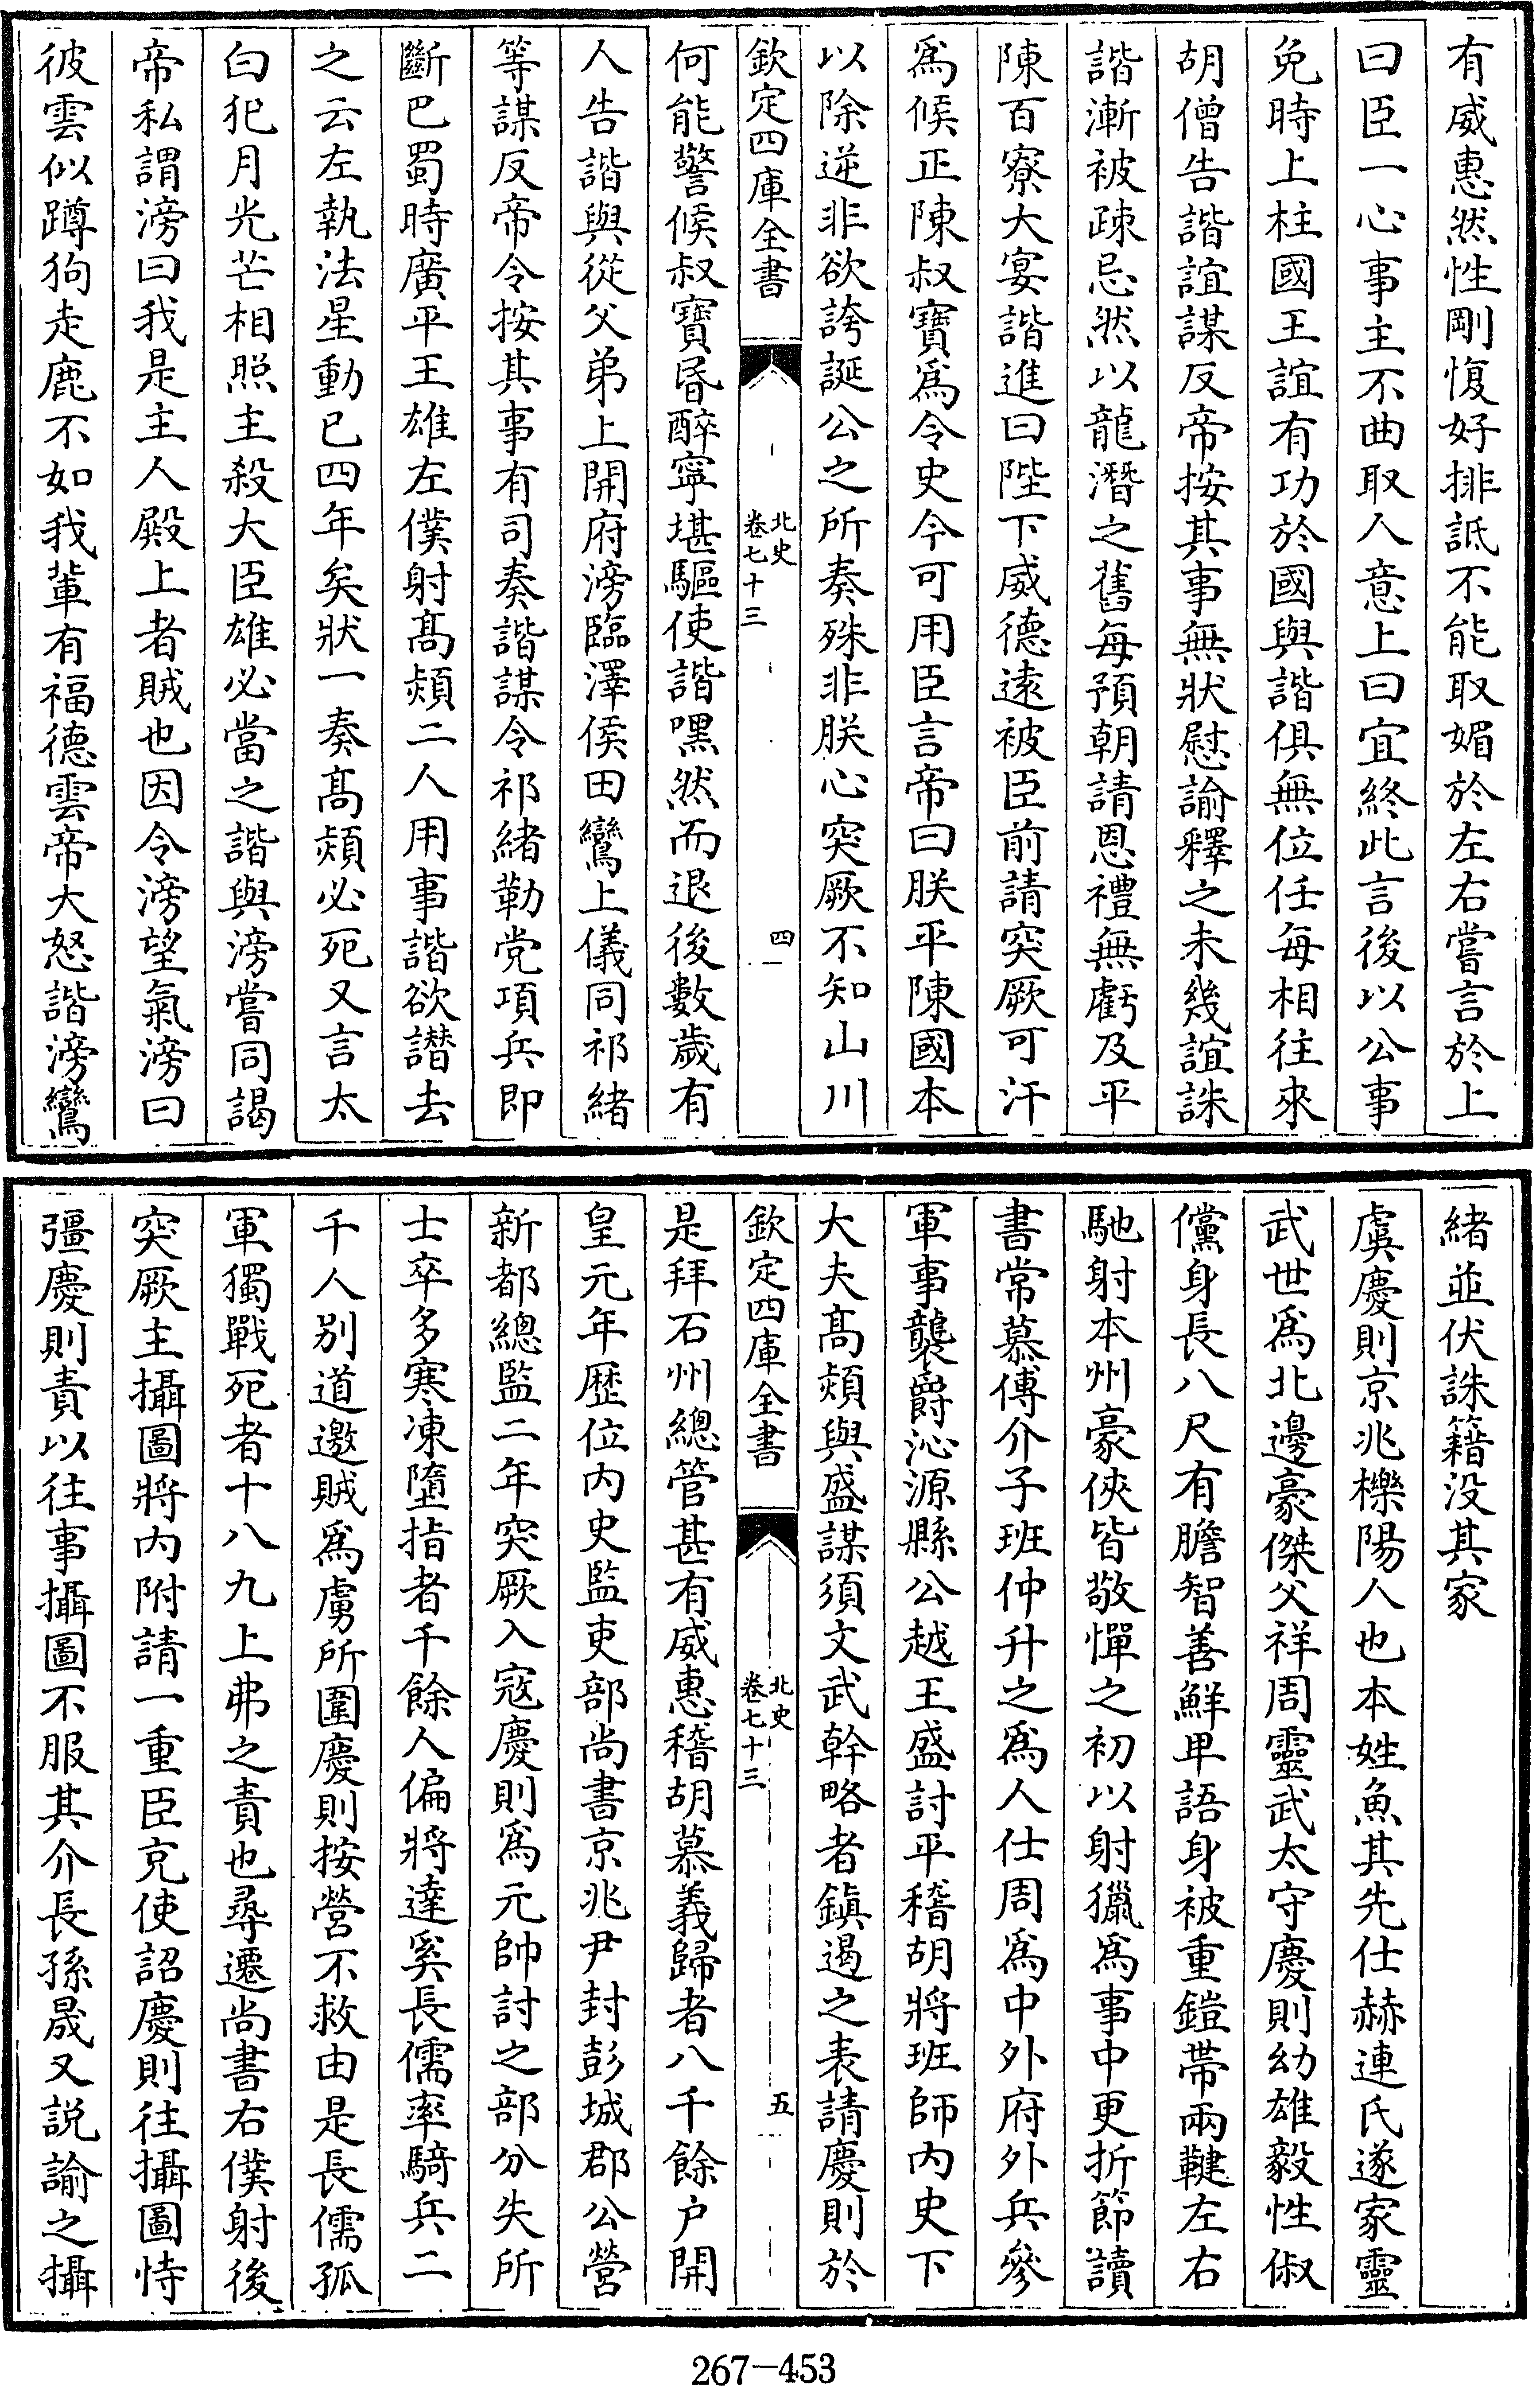 有威惠然性剛愎好排詆不能取媚於左右嘗言於上
曰臣一心事主不曲取人意上曰宜終此言後以公事
免時上柱國王誼有功於國與諧俱無位任每相往來
胡僧告諧誼謀反帝按其事無狀慰諭釋之未幾誼誅
諧漸被疎忌然以龍潛之舊每預朝請恩禮無虧及平
陳百寮大宴諧進曰陛下威德逺被臣前請突厥可汗
爲候正陳叔寶爲令史今可用臣言帝曰朕平陳國本
以除逆非欲誇誕公之所奏殊非朕心突厥不知山川
欽定四庫全書
北史
卷七十三
四
何能警候叔寶昬醉寧堪驅使諧嘿然而退後數歲有
人告諧與從父弟上開府滂臨澤侯田鸞上儀同祁緒
等謀反帝令按其事有司奏諧謀令祁緒勒党項兵即
斷巴蜀時廣平王雄左僕射髙熲二人用事諧欲譖去
之云左執法星動已四年矣狀一奏髙熲必死又言太
白犯月光芒相照主殺大臣雄必當之諧與滂嘗同謁
帝私謂滂曰我是主人殿上者賊也因令滂望氣滂曰
彼雲似蹲狗走鹿不如我輩有福德雲帝大怒諧滂鸞
緒並伏誅籍没其家
虞慶則京兆櫟陽人也本姓魚其先仕赫連氏遂家靈
武世爲北邊豪傑父祥周靈武太守慶則幼雄毅性俶
儻身長八尺有膽智善鮮卑語身被重鎧帶兩鞬左右
馳射本州豪俠皆敬憚之初以射獵爲事中更折節讀
書常慕傅介子班仲升之爲人仕周爲中外府外兵參
軍事襲爵沁源縣公越王盛討平稽胡將班師内史下
大夫髙熲與盛謀須文武幹略者鎮遏之表請慶則於
欽定四庫全書
北史
卷七十三
五
是拜石州總管甚有威惠稽胡慕義歸者八千餘户開
皇元年歷位内史監吏部尚書京兆尹封彭城郡公營
新都總監二年突厥入寇慶則爲元帥討之部分失所
士卒多寒凍墮指者千餘人偏將達奚長儒率騎兵二
千人别道邀賊爲虜所圍慶則按營不救由是長儒孤
軍獨戰死者十八九上弗之責也尋遷尚書右僕射後
突厥主攝圖將内附請一重臣充使詔慶則往攝圖恃
彊慶則責以往事攝圖不服其介長孫晟又説諭之攝
267-453